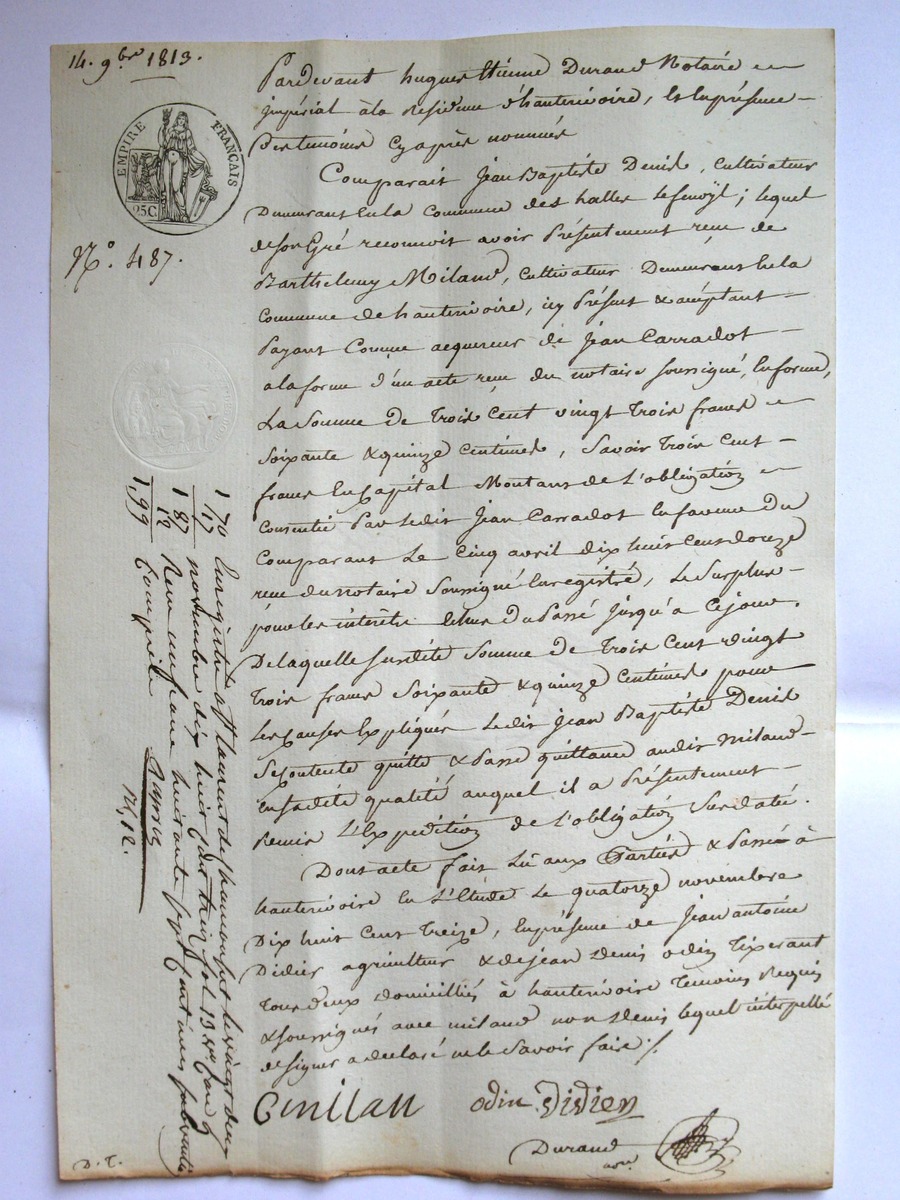 14. 9bre 1813.
EMPIRE FRANÇAIS
25C.
N.º 487.
Pardevant hugues Etienne Durand Notaire
impérial à la résidence d'hauterivoire, & En présence
Des temoins Cy après nommés
Comparait Jean Baptiste Denis, Cultivateur
Demeurant En la Commune des halles Le fenoÿl; lequel
de son Gré reconnoit avoir Présentement reçu de
Barthelemy Miland, Cultivateur Demeurant En la
Commune de hauterivoire, icy Présent & acceptant
Payant Comme acquereur de Jean Carradot
a la forme d'un acte reçu du notaire soussigné, En forme,
La Somme De Trois Cent vingt Trois francs
Soixante & quinze Centimes, Savoir Trois Cent
francs En Capital Montant de L'obligation
Consentie Par Ledit Jean Carradot En faveur Du
Comparant Le Cinq avril dix huit Cent douze
reçue du notaire Soussigné Enregistrée, Le Surplus
pour les intérêts Echus Du Passé Jusqu'a Ce jour.
De laquelle susdite Somme de Trois Cent vingt
Trois francs Soixante & quinze Centimes pour
Les causes Expliquées Ledit Jean Baptiste Denis
Se contente quitte & Passe quittance audit Miland
En sadite qualité auquel il a Présentement
Remis L'Expedition de L'obligation Susdatée.
Dont acte fait Lu aux Parties & Passé à
hauterivoire En L'Etude Le quatorze novembre
Dix huit Cent Treize, En présence de Jean antoine
Didier agriculteur & de jean denis odin Tixerant
Tous deux domiciliés à hauterivoire Temoins Requis
& soussignés avec miland non Denis lequel interpellé
de signer a declaré ne le Savoir faire ./.
odin Didier
Durand
D. T.
1 70
17
1 87
12
1,99
Enregistré à St laurent de chamousset le vingt deux
novembre dix huit cent treize fol. 13 vo. Case 9
Reçu un franc huitante sept centimes subvention
Comprise